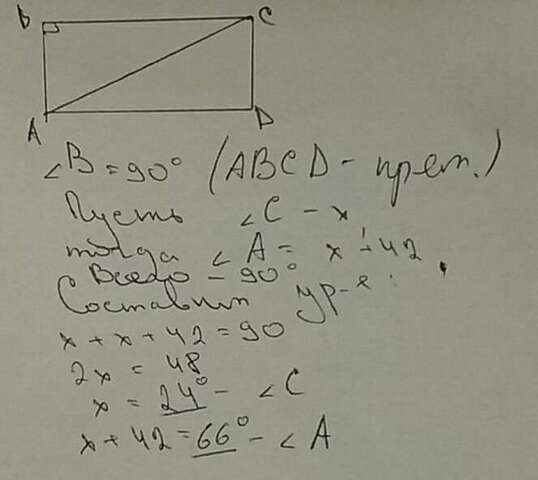 B C
A D
∠B = 90° (ABCD - прям.)
Пусть ∠C - x
тогда ∠A = x + 42
Всего - 90°
Составим ур-е:
x + x + 42 = 90
2x = 48
x = 24° - ∠C
x + 42 = 66° - ∠A